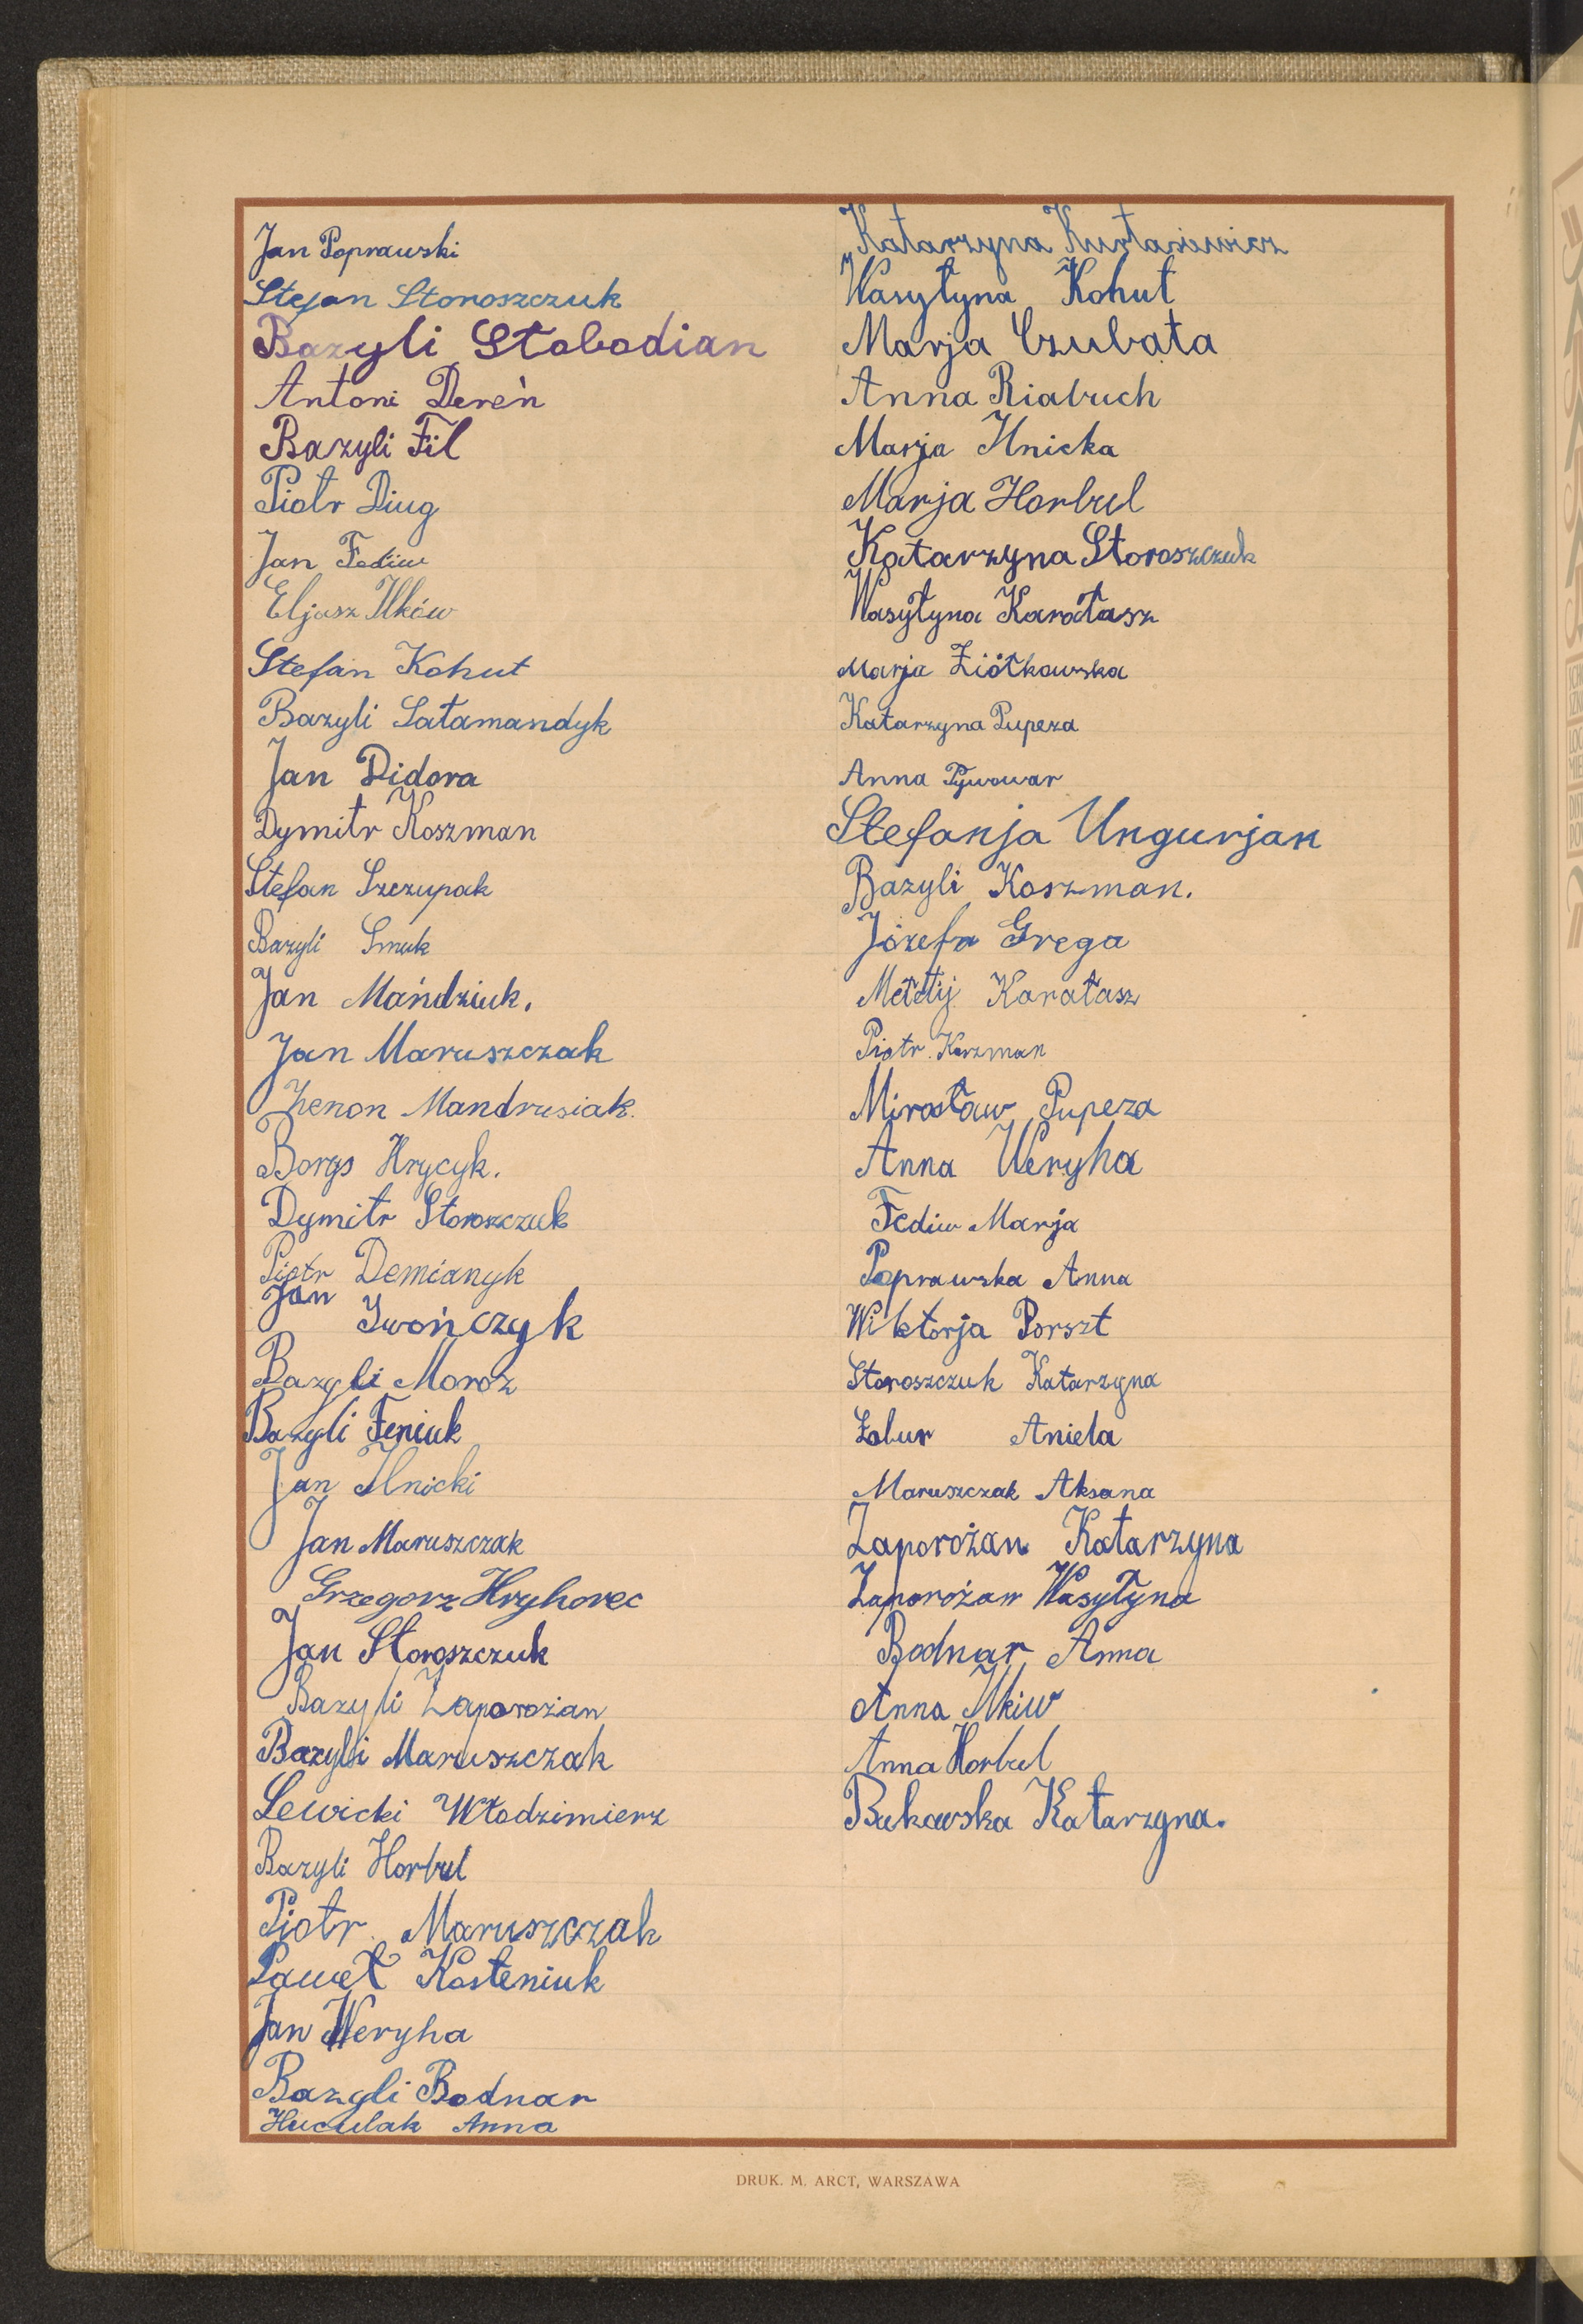 Jan Poprawski
Stefan Storoszczuk
Bazyli Słobodian
Antoni Dereń
Bazyli Fil
Piotr Diug
Jan Fediw
Eljasz Ilków
Stefan Kohut
Bazyli Łatamandyk
Jan Didora
Dymitr Koszman
Stefan Szczupak
Bazyli Smuk
Jan Mańdziuk.
Jan Maruszczak
Zenon Mandrusiak.
Borys Hrycyk.
Dymitr Storoszczuk
Piotr Demianyk
Jan Iwończyk
Bazyli Moroz
Bazyli Feniuk
Jan Ilnicki
Jan Maruszczak
Grzegorz Hryhorec
Jan Storoszczuk
Bazyli Zaporożan
Bazyli Maruszczak
Lewicki Włodzimierz
Bazyli Horbul
Piotr Maruszczak
Paweł Kosteniuk
Jan Weryha
Bazyli Bodnar
Huculak Anna
Katarzyna
Wasyłyna Kohut
Marja Czubata
Anna Riabuch
Marja Ilnicka
Marja Horbul
Katarzyna Storoszczuk
Wasyłyna Karałasz
Marja Ziółkowska
Katarzyna Pupeza
Anna Pywowar
Stefanja Ungurjan
Bazyli Koszman.
Józefa Grega
Karałasz
Piotr Korzman
Mirosław Pupeza
Anna Weryha
Fediw Marja
Poprawska Anna
Wiktorja Porszt
Storoszczuk Katarzyna
Żabur Aniela
Maruszczak Aksana
Zaporożan Katarzyna
Zaporożan Wasyłyna
Bodnar Anna
Anna Ilkiw
Anna Horbul
Bukowska Katarzyna.
DRUK. M. ARCT, WARSZAWA